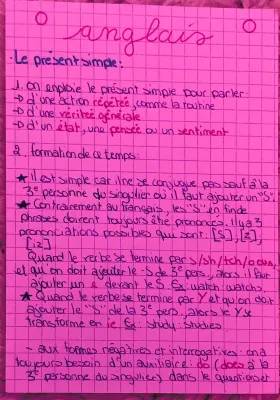 anglais
Le présent simple:
1. on emploie le présent simple pour parler
→ d'une action répétée, comme la routine
→ d'une vérité générale
→ d'un état, une pensée ou un sentiment
2. formation de ce temps
★ Il est simple car il ne se conjugue pas sauf à la
3e personne du singulier où il faut ajouter un "S".
★ Contrairement au français, les "S" en fin de
phrases doivent toujours être prononcés. il y a 3
prononciations possibles qui sont: [S], [Z],
[iz]
Quand le verbe se termine par s/sh/tch/o
et qui on doit ajouter le -s de 3e pers, alors il faut
ajouter un e devant le S. Ex: watch: watchs.
★ Quand le verbe se termine par Y et qu'on doit
ajouter le "S" de la 3e pers, alors le Y se
transforme en ie Ex: study: studies
- aux formes négatives et interrogatives: on a
toujours besoin d'un auxiliaire: do (does à la
3e personne du singulier) dans le question et